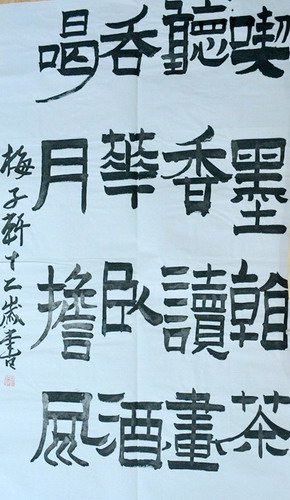 喫墨看茶
聽香讀畫
吞華臥酒
喝月擔風
梅子軒十二歲書